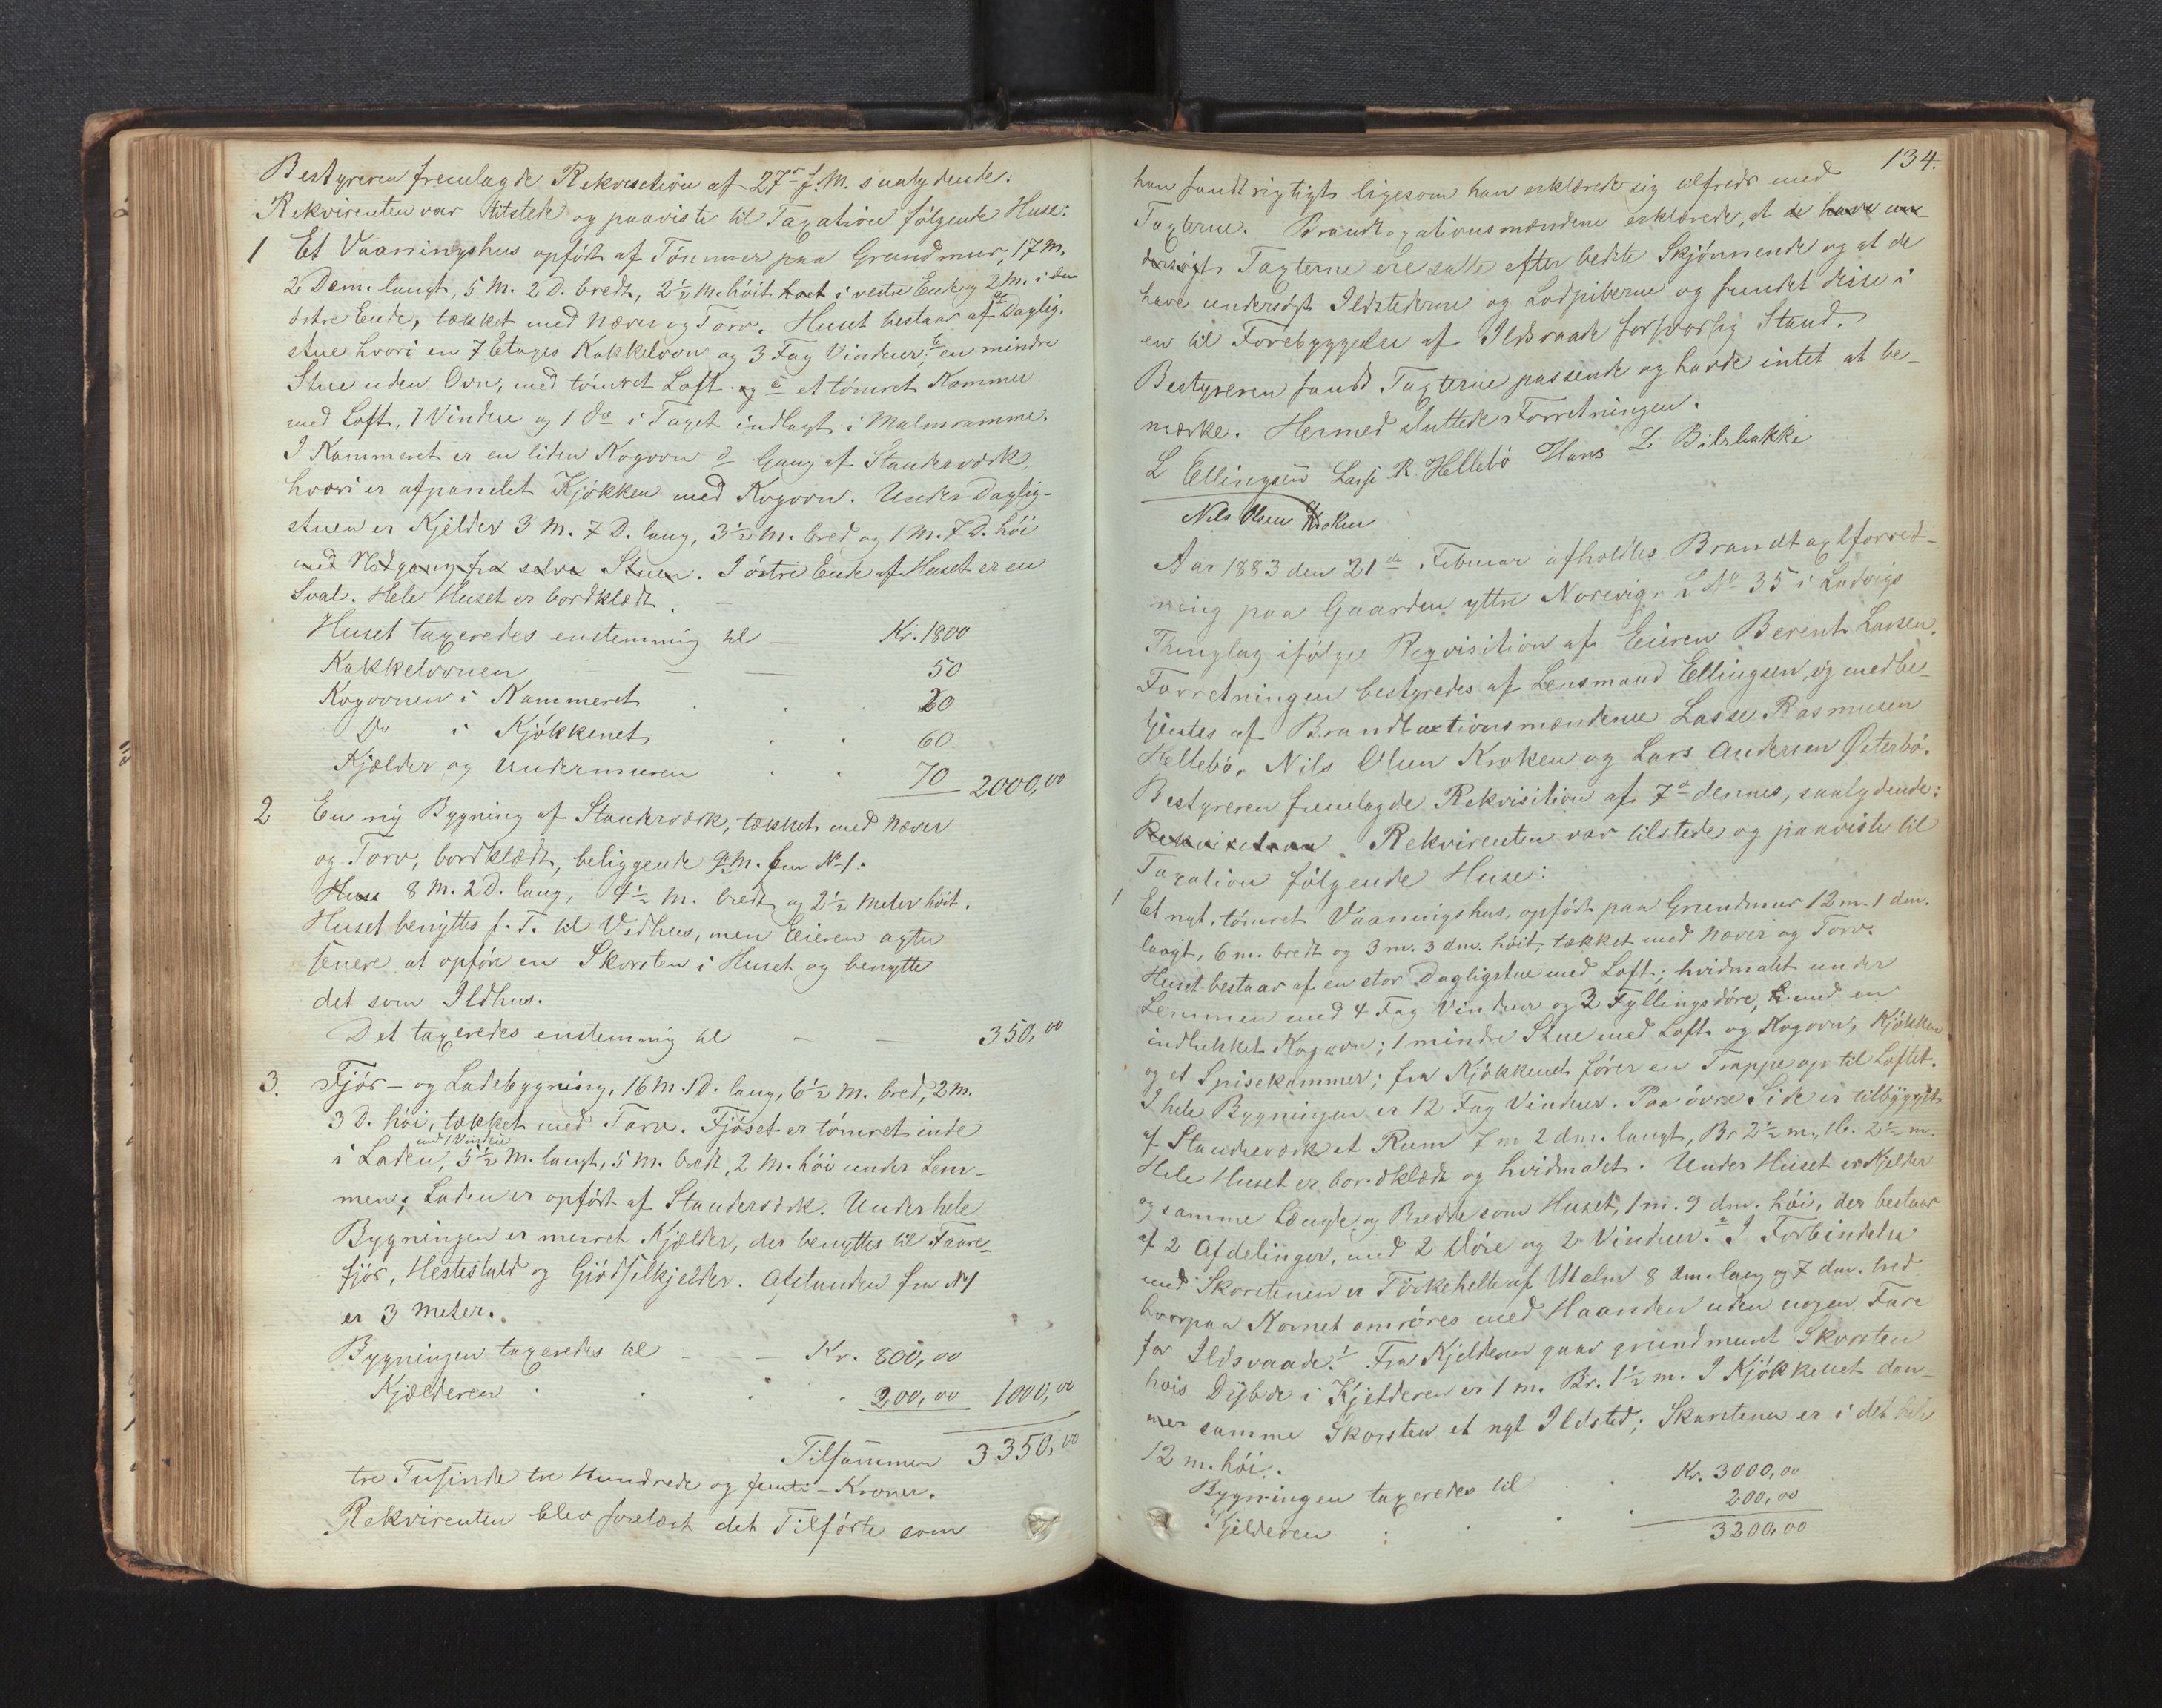 Bestyreren fremlagde Rekvisition af 27de f. M. saalydende:
Rekvirenten var tilstede og paaviste til Taxation følgende Huse:
1 Et Vaaningshus opført af Tømmer paa Grundmur, 17 M.
2 Dem. langt, 5 M. 2 D. bredt, 2½ M. høit i vestre Ende og 2 M. i den
østre Ende, tækket med Næver og Torv. Huset bestaar af a Daglig-
stue hvori en 7 Etages Kakkelovn og 3 Fag Vinduer, b en mindre
Stue uden Ovn, med tømret Loft og c et tømret Kammer
med Loft, 1 Vindue og 1 do i Taget indlagt i Malmramme.
I Kammeret er en liden Kogovn d Gang af Standerværk,
hvori er afpanelet Kjøkken med Kogovn. Under Daglig-
stuen er Kjelder 3 M. 7 D. lang, 3½ M. bred og 1 M. 7 D. høi
med Nedgang fra selve Stuen. I østre Ende af Huset er en
Sval. Hele Huset er bordklædt. –
Huset taxeredes enstemmig til – Kr. 1800
Kakkelovnen – – 50
Kogovnen i Kammeret . . 20
Do i Kjøkkenet . . 60
Kjelder og Undermuren . . 70 2000,00
2 En ny Bygning af Standerværk, tækket med Næver
og Torv, bordklædt, beliggende M. fra No 1.
Huset 8 M. 2 D. lang, 4½ M. bredt og 2½ Meter høit.
Huset benyttes f. T. til Vedhus, men Eieren agter
senere at opføre en Skorsten i Huset og benytte
det som Ildhus.
Det taxeredes enstemmig til – – 350,00
3. Fjøs- og Ladebygning, 16 M. 1 D. lang, 6½ M. bred, 2 M.
3 D. høi, tækket med Torv. Fjøset er tømret inde
i Laden, med 1 Vindue 5½ M. langt, 5 M. bredt, 2 M. høi under Lem-
men; Laden er opført af Standerværk. Under hele
Bygningen er muret Kjælder, der benyttes til Faare-
fjøs, Hestestald og Gjødselkjelder. Afstanden fra No 1
er 3 Meter.
Bygningen taxeredes til – – Kr. 800,00
Kjælderen . . . . 200,00 1000,00
Tilsammen 3350,00
tre Tusinde tre Hundrede og femti – Kroner.
Rekvirenten blev forelæst det Tilførte som
134.
han fandt rigtigt ligesom han erklærede sig tilfreds med
Taxterne. Brandtaxationsmændene erklærede, at de have un-
dersøgt Taxterne ere satte efter bedste Skjønnende og at de
have undersøgt Ildstederne og Lodpiberne og fundet disse i
en til Forebyggelse af Ildsvaade forsvarlig Stand.
Bestyreren fandt Taxterne passende og havde intet at be-
mærke. Hermed sluttede Forretningen.
L Ellingsen Lasse R. Hellebø Hans L Bilsbakke
Nils Olsen Kroken
Aar 1883 den 21de Februar afholdtes Brandtaxtforret-
ning paa Gaarden yttre Norevig, L No 35 i Ladvigs
Thinglag ifølge Reqvisition af Eieren Berent Larsen.
Forretningen bestyredes af Lensmand Ellingsen, og medbe-
tjentes af Brandtaxtionsmændene Lasse Rasmusen
Hellebø, Nils Olsen Kroken og Lars Andersen Østerbø.
Bestyreren fremlagde Rekvisition af 7de dennes, saalydende:
Rekvirenten var tilstede og paaviste til
Taxation følgende Huse:
1 Et nyt, tømret Vaaningshus, opført paa Grundmur 12 m. 1 dm.
langt, 6 m. bredt og 3 m. 3 dm. høit, tækket med Næver og Torv.
Huset bestaar af en stor Dagligstue med Loft, hvidmalet under
Lemmen med 4 Fag Vinduer og 2 Fyllingsdøre, med en
indlukket Kogovn; 1 mindre Stue med Loft og Kogovn, Kjøkken
og et Spisekammer; fra Kjøkkenet fører en Trappe op til Loftet.
I hele Bygningen er 12 Fag Vinduer. Paa øvre Side er tilbygget
af Standerværk et Rum 7 m 2 dm. langt, Br 2½ m., H. 2½ m.
Hele Huset er bordklædt og hvidmalet. Under Huset er Kjelder
og samme Længde og Bredde som Huset, 1 m. 9 dm. høi, der bestaar
af 2 Afdelinger, med 2 Døre og 2 Vinduer. I Forbindelse
med Skorstenen er Tørkehelle af Malm 8 dm. lang og 7 dm. bred
hvorpaa Kornet omrøres med Haanden uden nogen Fare
for Ildsvaade. Fra Kjelderen gaar grundmuret Skorsten
hvis Dybde i Kjelderen er 1 m. Br. 1½ m. I Kjøkkenet dan-
ner samme Skorsten et nyt Ildsted; Skorstenen er i det hele
12 m. høi.
Bygningen taxeredes til . . Kr. 3000,00
Kjelderen . . . 200,00
3200,00